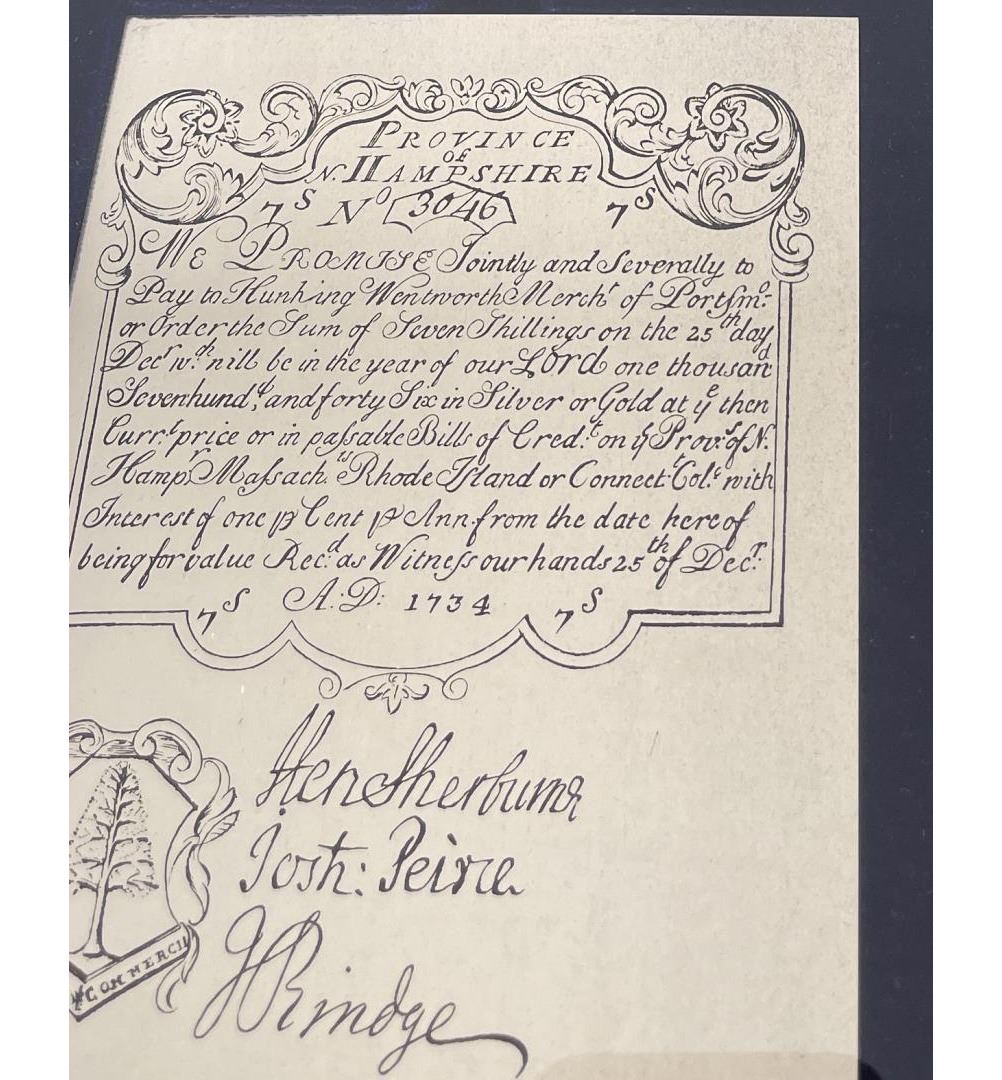 PROVINCE
OF
N. HAMPSHIRE
7S No 3046 7S
WE PROMISE Jointly and Severally to
Pay to Hunking Wentworth Mercht of Portsmo:
or Order the Sum of Seven Shillings on the 25th day
Decr wch will be in the year of our Lord one thousand
Sevenhundd, and forty Six in Silver or Gold at ye then
Currt price or in passable Bills of Credt on ye Provs of N.
Hampr Massachts Rhode Island or Connectt Cole with
Interest of one p Cent p Ann. from the date hereof
being for value Recd as Witness our hands 25th of Decr:
7S A:D: 1734 7S
Hen Sherburne
Josh: Peirce
J Rindge
COMMERCII